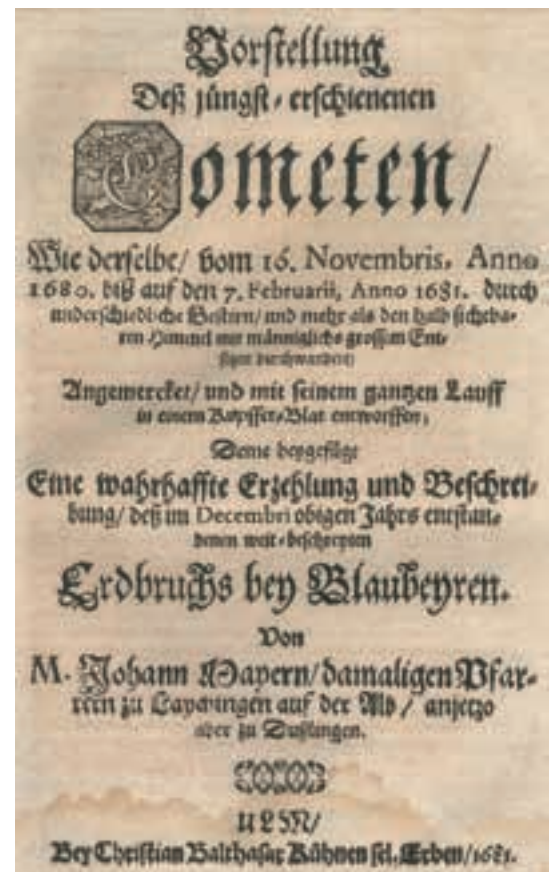 Vorstellung
Deß jüngst-erschienenen
Cometen/
Wie derselbe/ vom 16. Novembris. Anno
1680. biß auf den 7. Februarii, Anno 1681. durch
underschiedliche Gestirn/ und mehr als den halb sichtba-
ren Himmel mit männiglichs grossem Ent-
setzen durchwandert/
Angemercket/ und mit seinem gantzen Lauff
in einem Kupffer-Blat entworffen;
Deme beygefügt
Eine wahrhaffte Erzehlung und Beschrei-
bung/ deß im Decembri obigen Jahrs entstan-
denen weit-beschreyten
Erdbruchs bey Blaubeyren.
Von
M. Johann Mayern/ damaligen Pfar-
rern zu Laychingen auf der Alb/ anjetzo
aber zu Dußlingen.
ULM/
Bey Christian Balthasar Kühnen sel. Erben/1681.